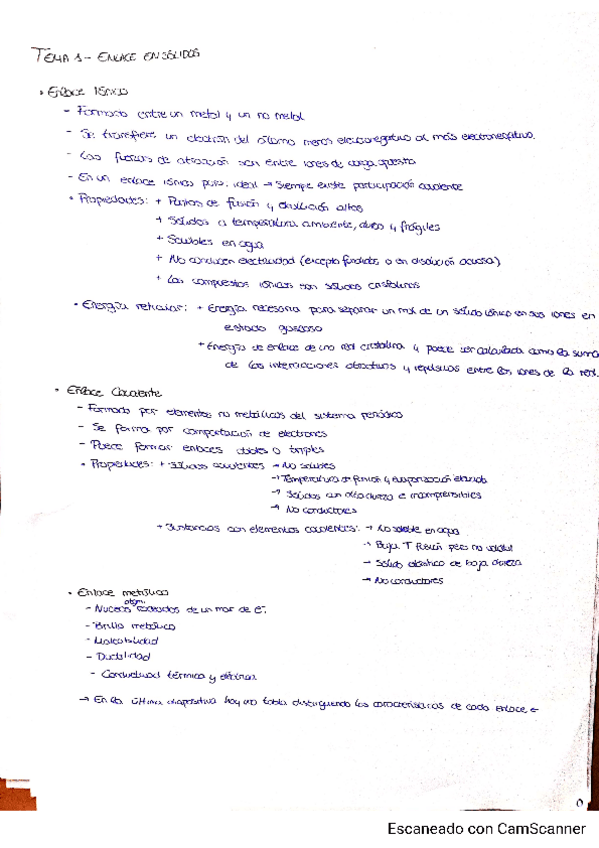 TEMA 1 - ENLACE EN SÓLIDOS
• Enlace Iónico
- Formado entre un metal y un no metal
- Se transfiere un electrón del átomo menos electronegativo al más electronegativo.
- Las fuerzas de atracción son entre iones de carga opuesta
- En un enlace iónico puro: ideal → Siempre existe participación covalente
• Propiedades: + Puntos de fusión y ebullición altos
+ Sólidos a temperatura ambiente, duros y frágiles
+ Solubles en agua
+ No conducen electricidad (excepto fundidos o en disolución acuosa)
+ Los compuestos iónicos son sólidos cristalinos
• Energía reticular: + Energía necesaria para separar un mol de un sólido iónico en sus iones en
estado gaseoso
+ Energía de enlace de una red cristalina y puede ser calculada como la suma
de las interacciones atractivas y repulsivas entre los iones de la red.
• Enlace Covalente
- Formado por elementos no metálicos del sistema periódico
- Se forma por compartición de electrones
- Puede formar enlaces dobles o triples
• Propiedades: + Sólidos covalentes → No solubles
→ Temperatura de fusión y evaporización elevada
→ Sólidos con alta dureza e incomprensibles
→ No conductores
+ Sustancias con elementos covalentes: → No soluble en agua
→ Baja T fusión pero no volátil
→ Sólido elástico de baja dureza
→ No conductores
• Enlace metálico
atóm.
- Núcleos rodeados de un mar de e⁻.
- Brillo metálico
- Maleabilidad
- Ductilidad
- Conductividad térmica y eléctrica
→ En la última diapositiva hay una tabla distinguiendo las características de cada enlace ←
Escaneado con CamScanner